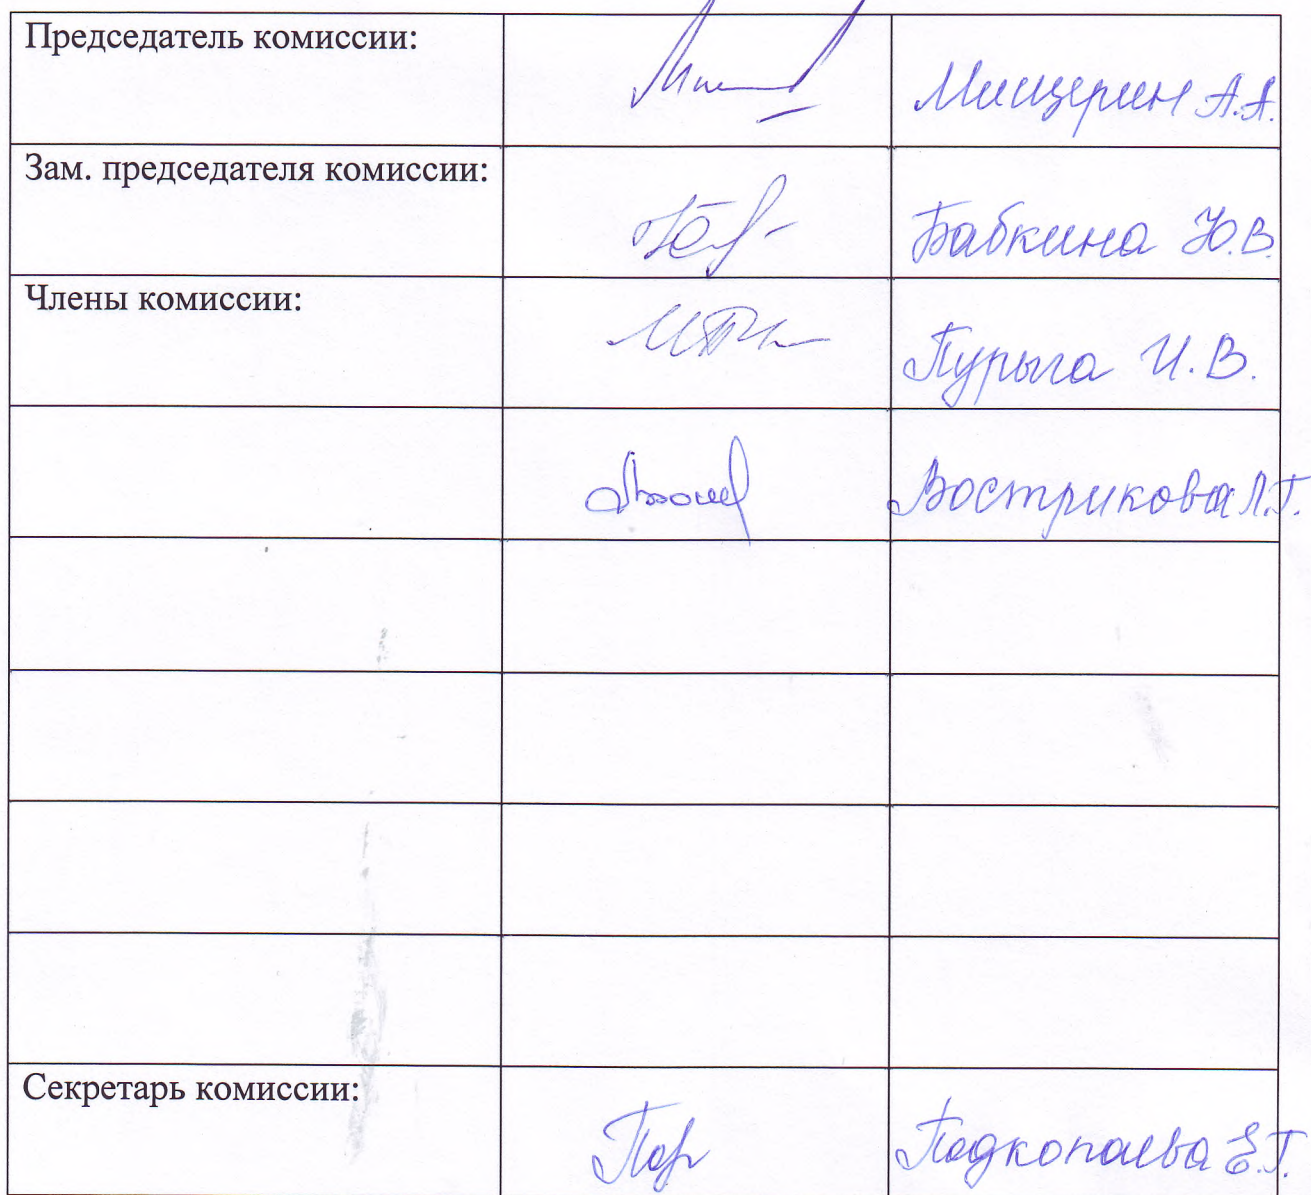 Председатель комиссии: Мищерин А.А.
Зам. председателя комиссии: Бабкина Ю.В.
Члены комиссии: Пурыга И.В.
Вострикова Л.Г.
Секретарь комиссии: Подкопаева Е.Г.